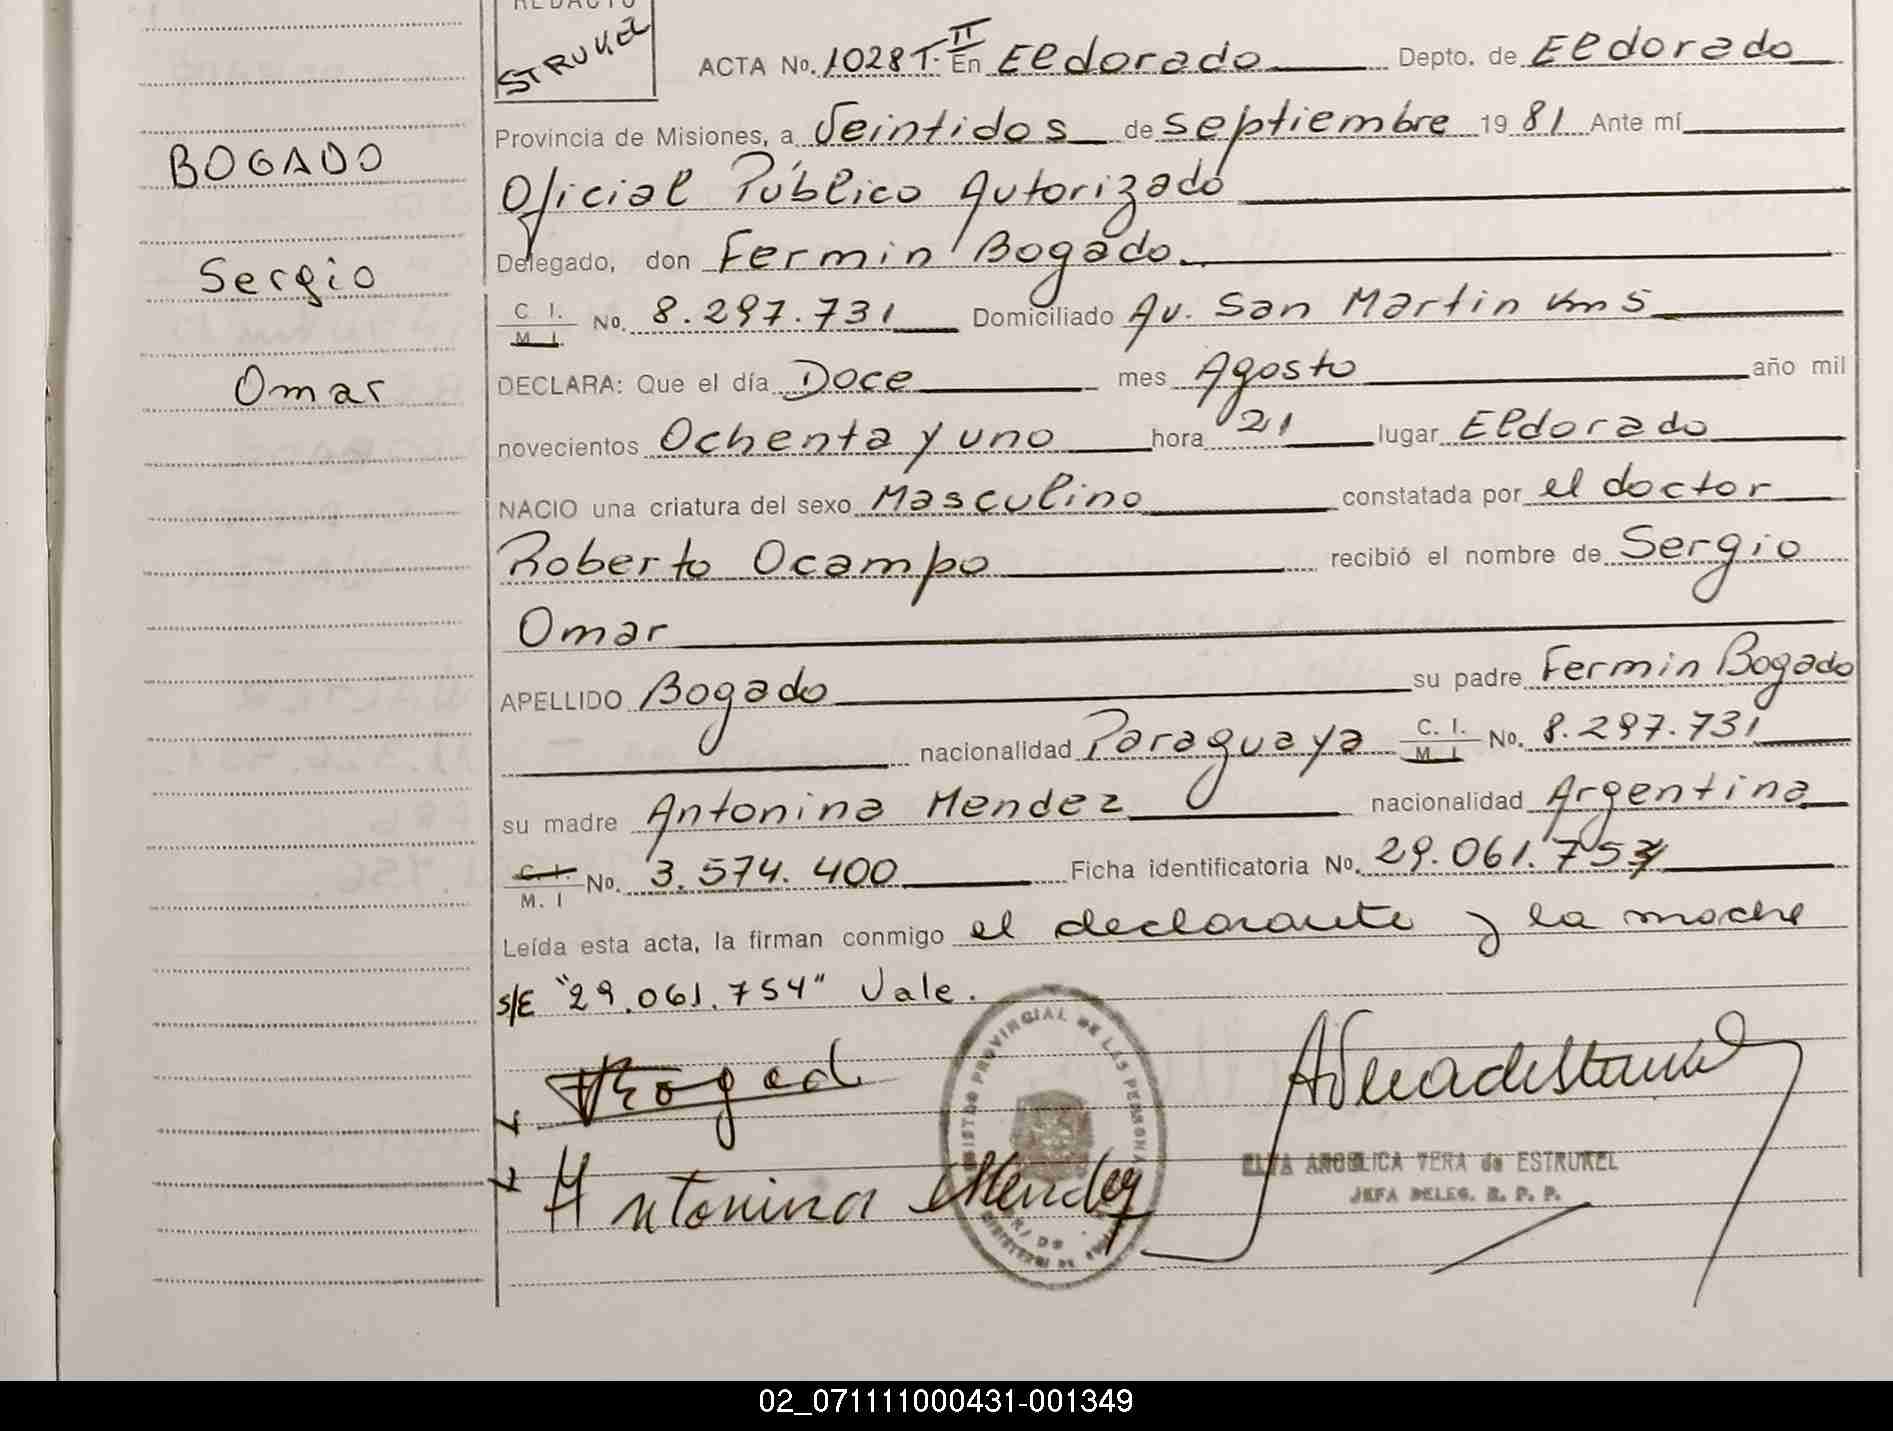 REDACTO
STRUKEL
ACTA No. 1028 T. II En Eldorado Depto. de Eldorado
Provincia de Misiones, a Veintidos de septiembre 19 81 Ante mí
Oficial Público Autorizado
Delegado, don Fermin Bogado.
C. I. M. I. No. 8.297.731 Domiciliado Av. San Martin Km 5
DECLARA: Que el día Doce mes Agosto año mil
novecientos Ochenta y uno hora 21 lugar Eldorado
NACIO una criatura del sexo Masculino constatada por el doctor
Roberto Ocampo recibió el nombre de Sergio
Omar
APELLIDO Bogado su padre Fermin Bogado
nacionalidad Paraguaya C. I. M. I. No. 8.297.731
su madre Antonina Mendez nacionalidad Argentina
C. I. M. I No. 3.574.400 Ficha identificatoria No. 29.061.757
Leída esta acta, la firman conmigo el declarante y la madre
s/E "29.061.754" Vale.
BOGADO
Sergio
Omar
Bogad
Antonina Mendez
REGISTRO PROVINCIAL DE LAS PERSONAS
ELVA ANGELICA VERA de ESTRUKEL
JEFA DELEG. R. P. P.
02_071111000431-001349